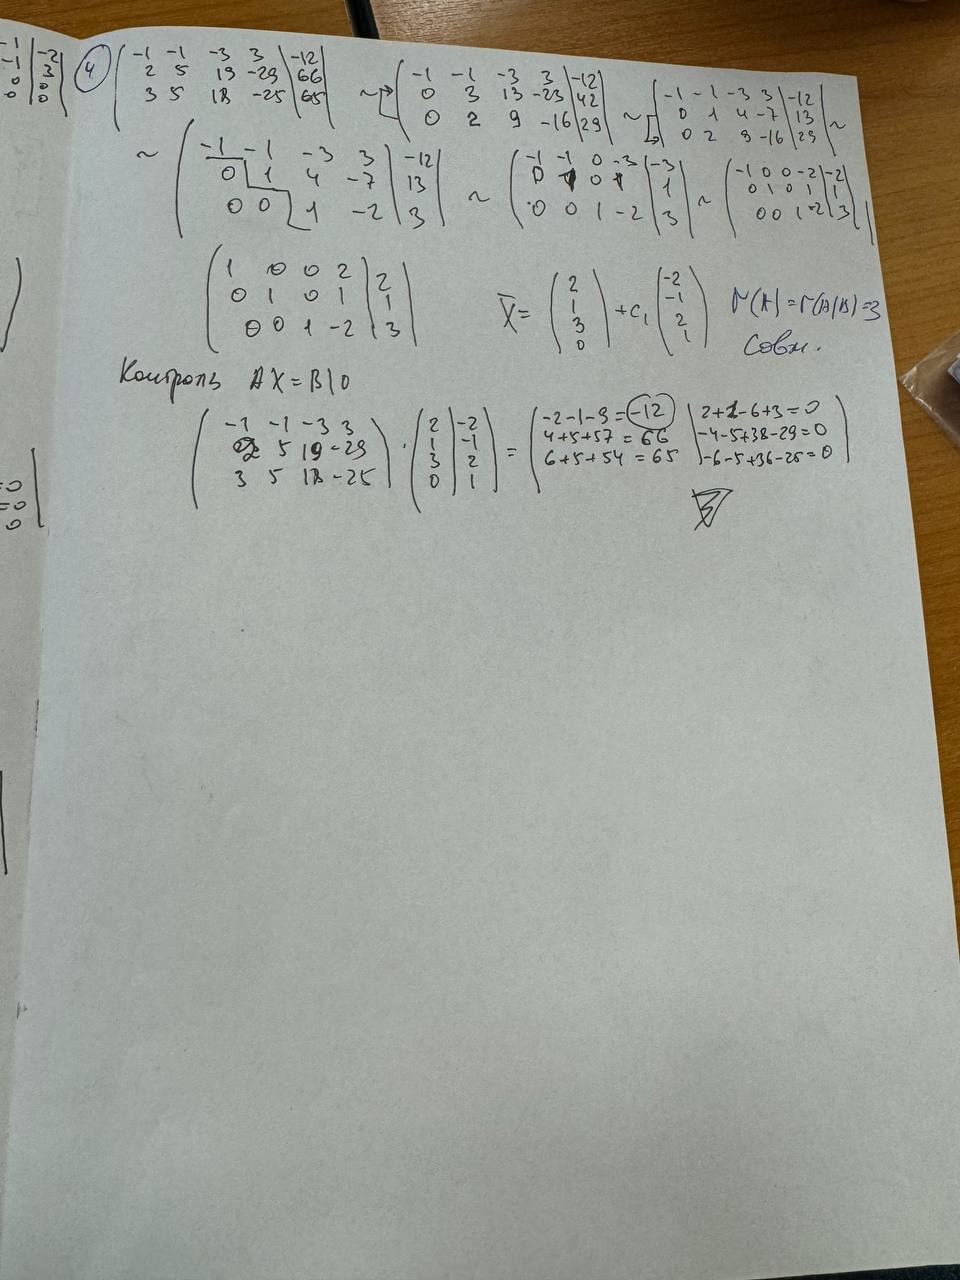 -1
-1
0
0
-2
3
0
0
4
-1 -1 -3 3 | -12
2 5 19 -29 | 66
3 5 18 -25 | 65
~
-1 -1 -3 3 | -12
0 3 13 -23 | 42
0 2 9 -16 | 29
~
-1 -1 -3 3 | -12
0 1 4 -7 | 13
0 2 9 -16 | 29
~
~
-1 -1 -3 3 | -12
0 1 4 -7 | 13
0 0 1 -2 | 3
~
-1 -1 0 -3 | -3
0 1 0 1 | 1
0 0 1 -2 | 3
~
-1 0 0 -2 | -2
0 1 0 1 | 1
0 0 1 -2 | 3
1 0 0 2 | 2
0 1 0 1 | 1
0 0 1 -2 | 3
X̄ = (2 1 3 0) + C₁ (-2 -1 2 1)
r(A) = r(A|B) = 3
Совм.
Контроль AX = B|0
-1 -1 -3 3
2 5 19 -29
3 5 18 -25
·
2 | -2
1 | -1
3 | 2
0 | 1
=
-2-1-9 = -12 | 2+1-6+3=0
4+5+57 = 66 | -4-5+38-29=0
6+5+54 = 65 | -6-5+36-25=0
=0
=0
0